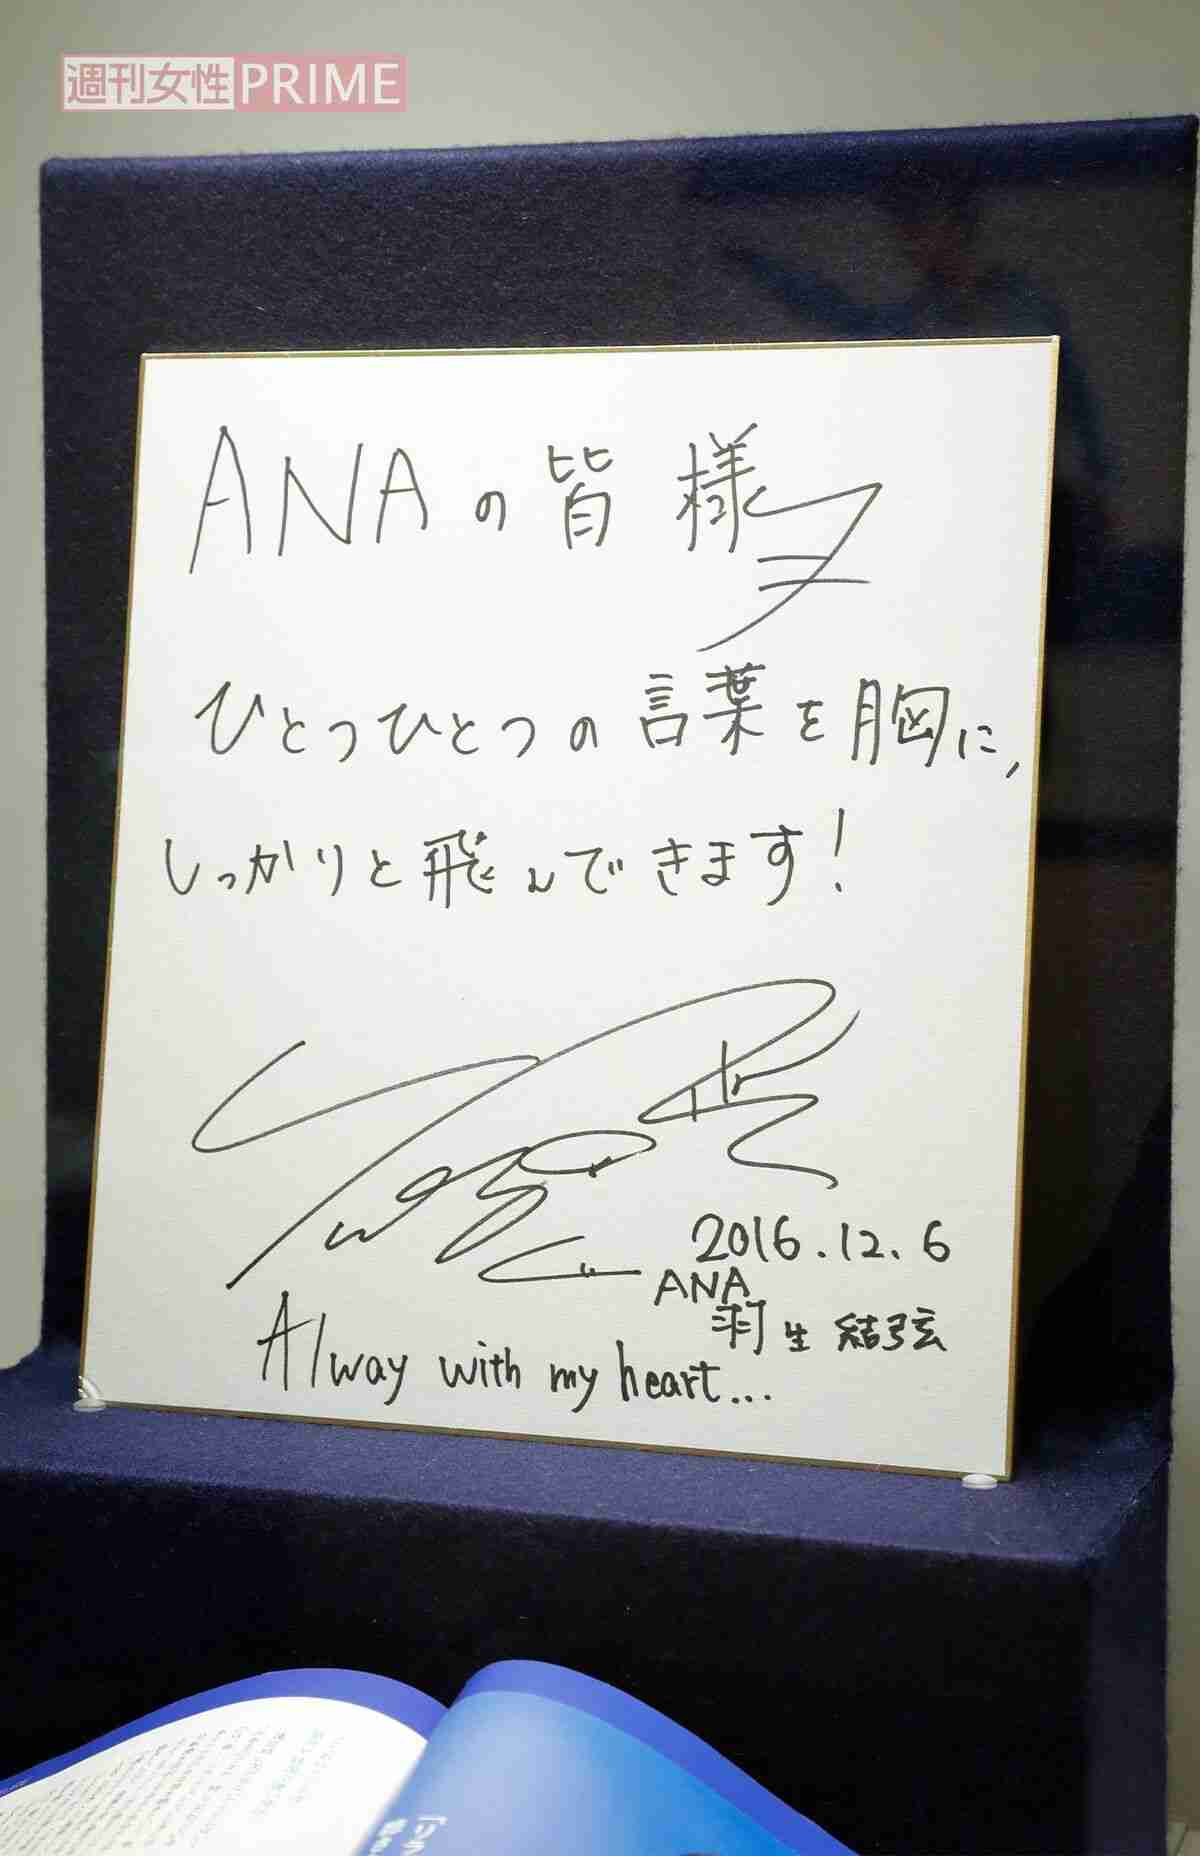 週刊女性PRIME
ANAの皆様へ
ひとつひとつの言葉を胸に,
しっかりと飛んできます!
2016.12.6
ANA
羽生結弦
Alway with my heart...